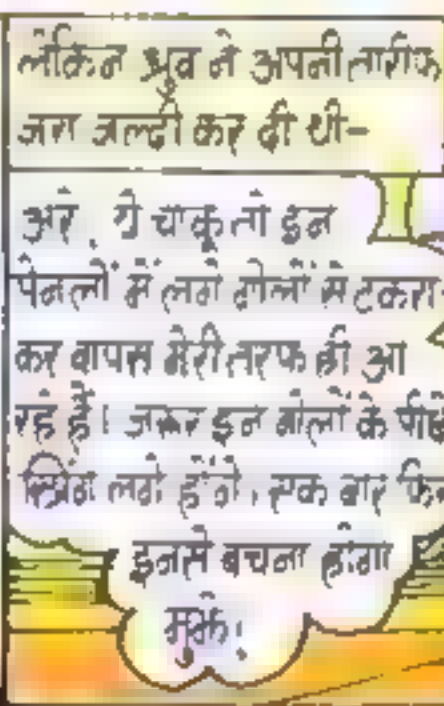 लेकिन ध्रुव ने अपनी तारीफ
जरा जल्दी कर दी थी-
अरे, ये चाकू तो इन
पैनलों में लगे गोलों से टकरा-
कर वापस मेरी तरफ ही आ
रहे हैं। जरूर इन गोलों के पीछे
स्प्रिंग लगे होंगे, एक बार फिर
इनसे बचना होगा
मुझे!